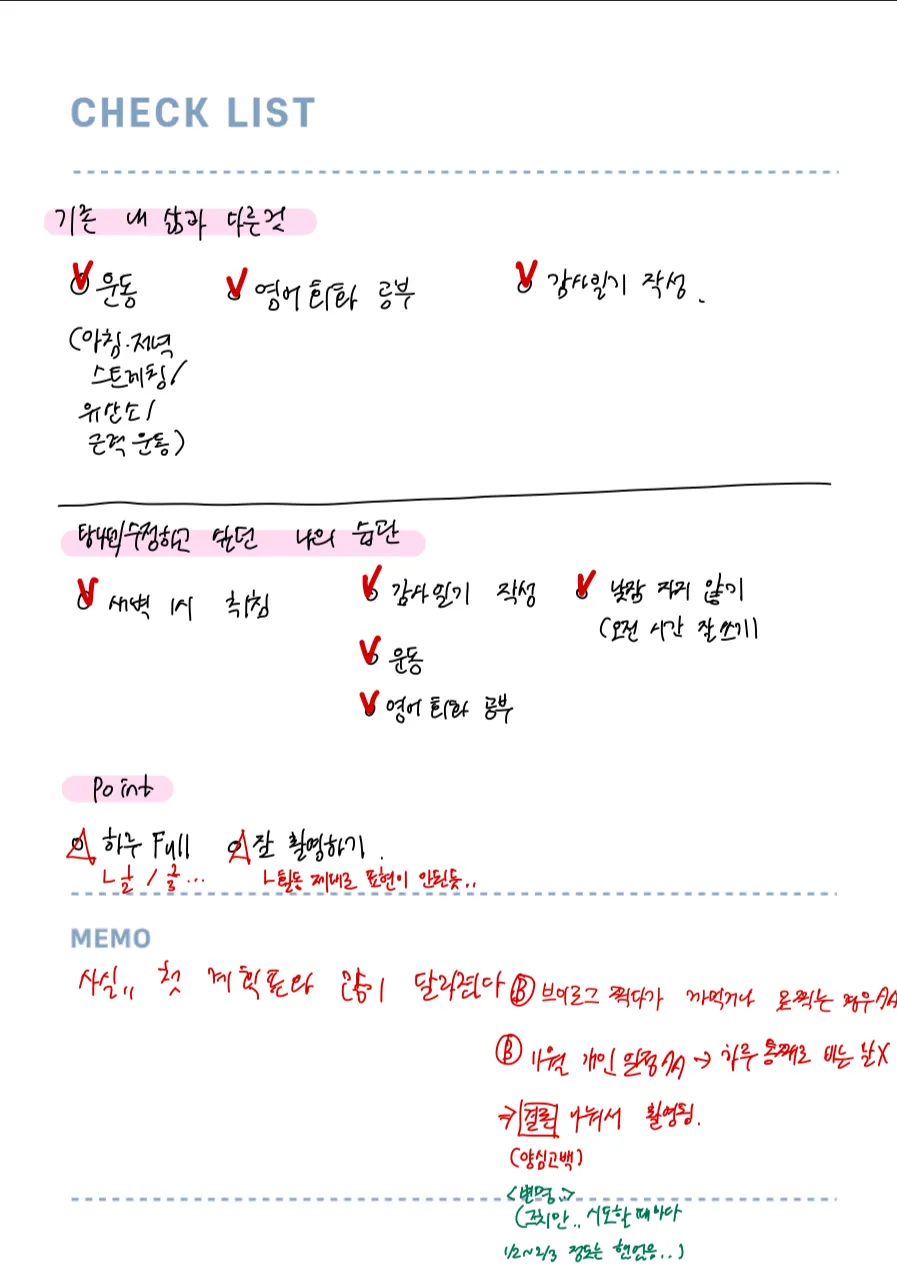 CHECK LIST
기존 내 삶과 다른것
운동
영어 회화 공부
감사일기 작성.
(아침·저녁
스트레칭/
유산소/
근력 운동)
수정하고 싶던 나의 습관
새벽 1시 취침
감사일기 작성
낮잠 자지 않기
(오전 시간 잘 쓰기)
운동
영어 회화 공부
Point
하루 Full
잘 촬영하기.
ㄴ 1/2 / 2/3 ...
ㄴ활동 제대로 표현이 안된듯..
MEMO
사실,, 첫 계획표와 많이 달라졌다
Ⓑ 브이로그 찍다가 까먹거나 못찍는 경우
Ⓑ 11월 개인 일정 → 하루 통째로 비는 날X
⇒ 결론 나눠서 촬영됨.
(양심고백)
<변명..>
(그치만.. 시도할 때마다
1/2~2/3 정도는 했었음..)